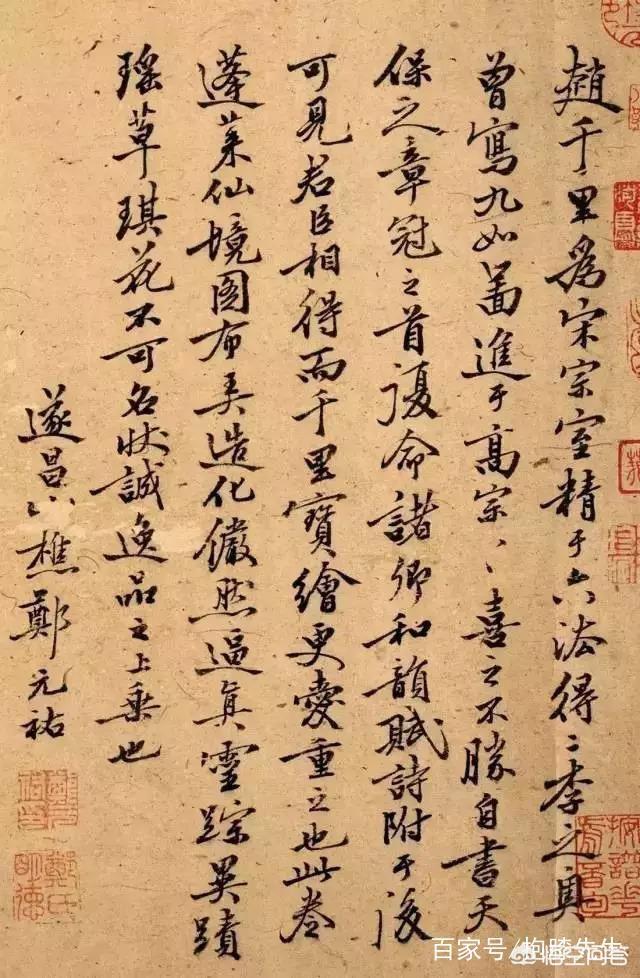 趙千里為宋宗室精于六法得二李之奧
曾寫九如啚進于高宗、喜之不勝自書天
保之章冠之首復命諸卿和韻賦詩附于後
可見君臣相得而千里寶繪更愛重之也此卷
蓬萊仙境圖布弄造化儼然逼真靈踪異蹟
瑶草琪花不可名狀誠逸品之上乗也
遂昌山樵鄭元祐
鄭氏
明德
百家号/枸陵先生
悟空问答